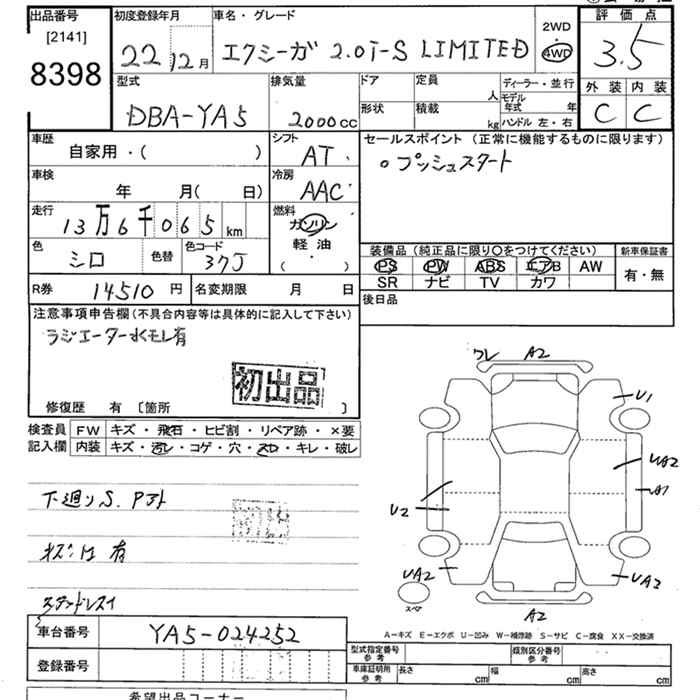 出品番号 初度登録年月 車名・グレード 2WD 評価点
[2141] 22年12月 エクシーガ 2.0i-S LIMITED 4WD 3.5
8398 型式 排気量 ドア 定員 人 ディーラー・並行 外装 内装
DBA-YA5 2000cc 形状 積載 kg モデル年式 年 C C
ハンドル 左・右
車歴 自家用・( ) シフト AT セールスポイント (正常に機能するものに限ります)
車検 年 月( 日) 冷房 AAC 。プッシュスタート
走行 13万6千065km 燃料 ガソリン
軽油
( ・ )
色 シロ 色替 色コード 37J 装備品 (純正品に限り○をつけてください) 新車保証書
PS PW ABS エアB AW 有・無
SR ナビ TV カワ
R券 14510円 名変期限 月 日 後日品
注意事項申告欄 (不具合内容等は具体的に記入して下さい)
ラジエーター水モレ有
初出品
修復歴 有 〔箇所 〕
検査員 FW キズ・飛石・ヒビ割・リペア跡・×要
記入欄 内装 キズ・汚レ・コゲ・穴・スレ・キレ・破レ
ワレ A2
U1
UA2
A1
U2
下廻りS.
有
UA2 UA2
スペア A2
A-キズ E-エクボ U-凹み W-補修跡 S-サビ C-腐食 XX-交換済
車台番号 YA5-024252
登録番号
型式指定番号 参考 類別区分番号 参考
車庫証明用 参考 長さ cm 幅 cm 高さ cm
希望出品コーナー